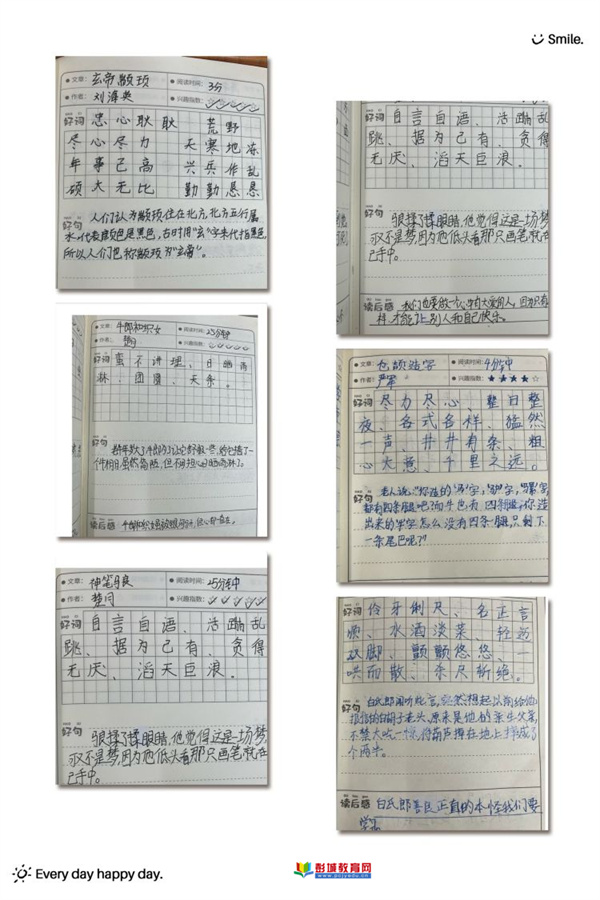 Smile.
文章：玄帝颛顼
阅读时间：3分
作者：刘海英
兴趣指数：
好词 忠心耿耿 荒野
尽心尽力 天寒地冻
年事已高 兴兵作乱
硕大无比 勤勤恳恳
好句 人们认为颛顼住在北方，北方五行属
水，代表颜色是黑色，古时用"玄"字来代指黑色
所以人们也称颛顼为"玄帝"。
文章：牛郎和织女
阅读时间：25分钟
作者：
兴趣指数：
好词 蛮不讲理、日晒雨
淋、团圆、天条。
好句
读后感
文章：神笔马良
阅读时间：25分钟
作者：楚问
兴趣指数：
好词 自言自语、活蹦乱
跳、据为己有、贪得
无厌、滔天巨浪。
好句 狠揉了揉眼睛，他觉得这是一场梦
可又不是梦，因为他低头看那只画笔就在
手中。
好词 自言自语、活蹦乱
跳、据为己有、贪得
无厌、滔天巨浪。
好句 狠揉了揉眼睛，他觉得这是一场梦
可又不是梦，因为他低头看那只画笔就在
手中。
读后感 我们也要做一个心中有大爱的人，
才能让别人和自己快乐。
文章：仓颉造字
阅读时间：4分钟
作者：严军
兴趣指数：★★★★☆
好词 尽力尽心、整日整
夜、各式各样、猛然
一声、井井有条、粗
心大意、千里之远。
好句 老人说："你造的'马'字，'驴'字，'骡'字
都有四条腿吧？而牛也有四条腿，你造
出来的'牛'字怎么没有四条腿，只剩下
一条尾巴呢？"
好词 伶牙俐尺、名正言
顺、水酒淡菜、轻
双脚、颤颤悠悠、一
哄而散、杀尺斩绝。
好句 白氏郎闻听此言，突然想起以前给他
指的白胡子老头，原来是他的亲生父亲，
不禁大吃一惊，将葫芦摔在地上摔成了
个两半。
读后感 白氏郎善良正直的本性我们要
学习
Every day happy day.
彭城教育网
www.pcjyedu.cn